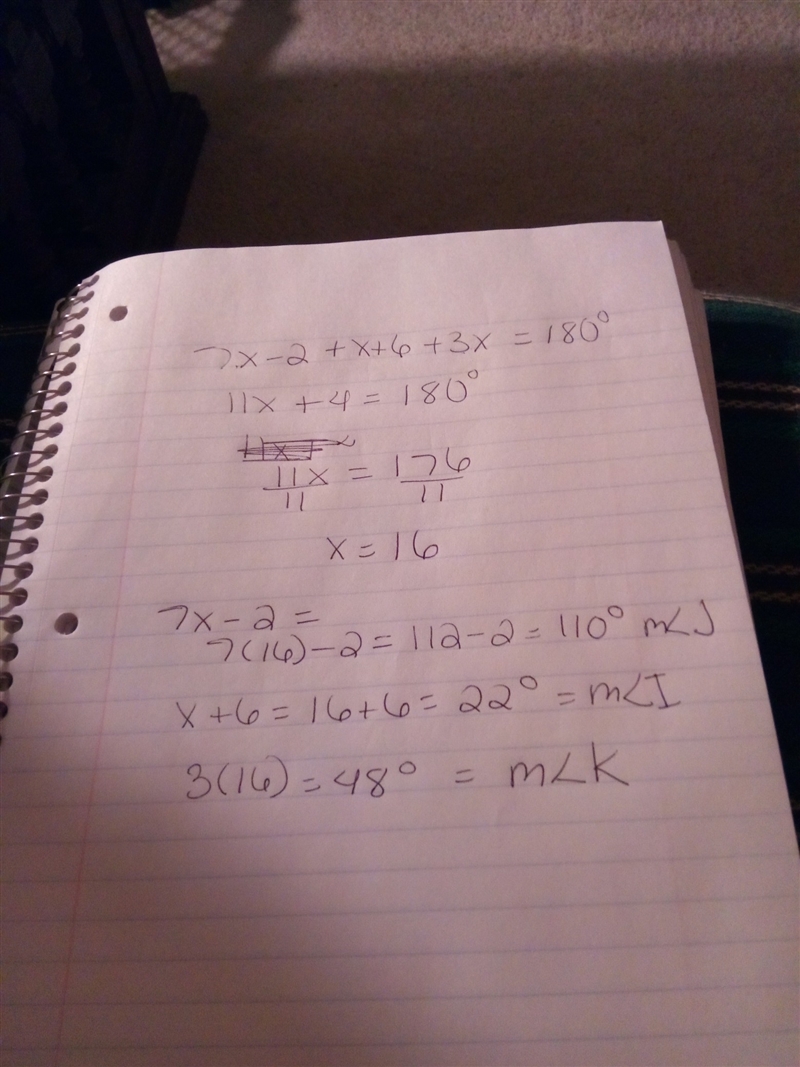 7x-2 +x+6 +3x = 180°
11x + 4 = 180°
11x = 176
11 11
x = 16
7x-2 =
7(16)-2 = 112-2 = 110° m∠J
x+6 = 16+6 = 22° = m∠I
3(16) = 48° = m∠K